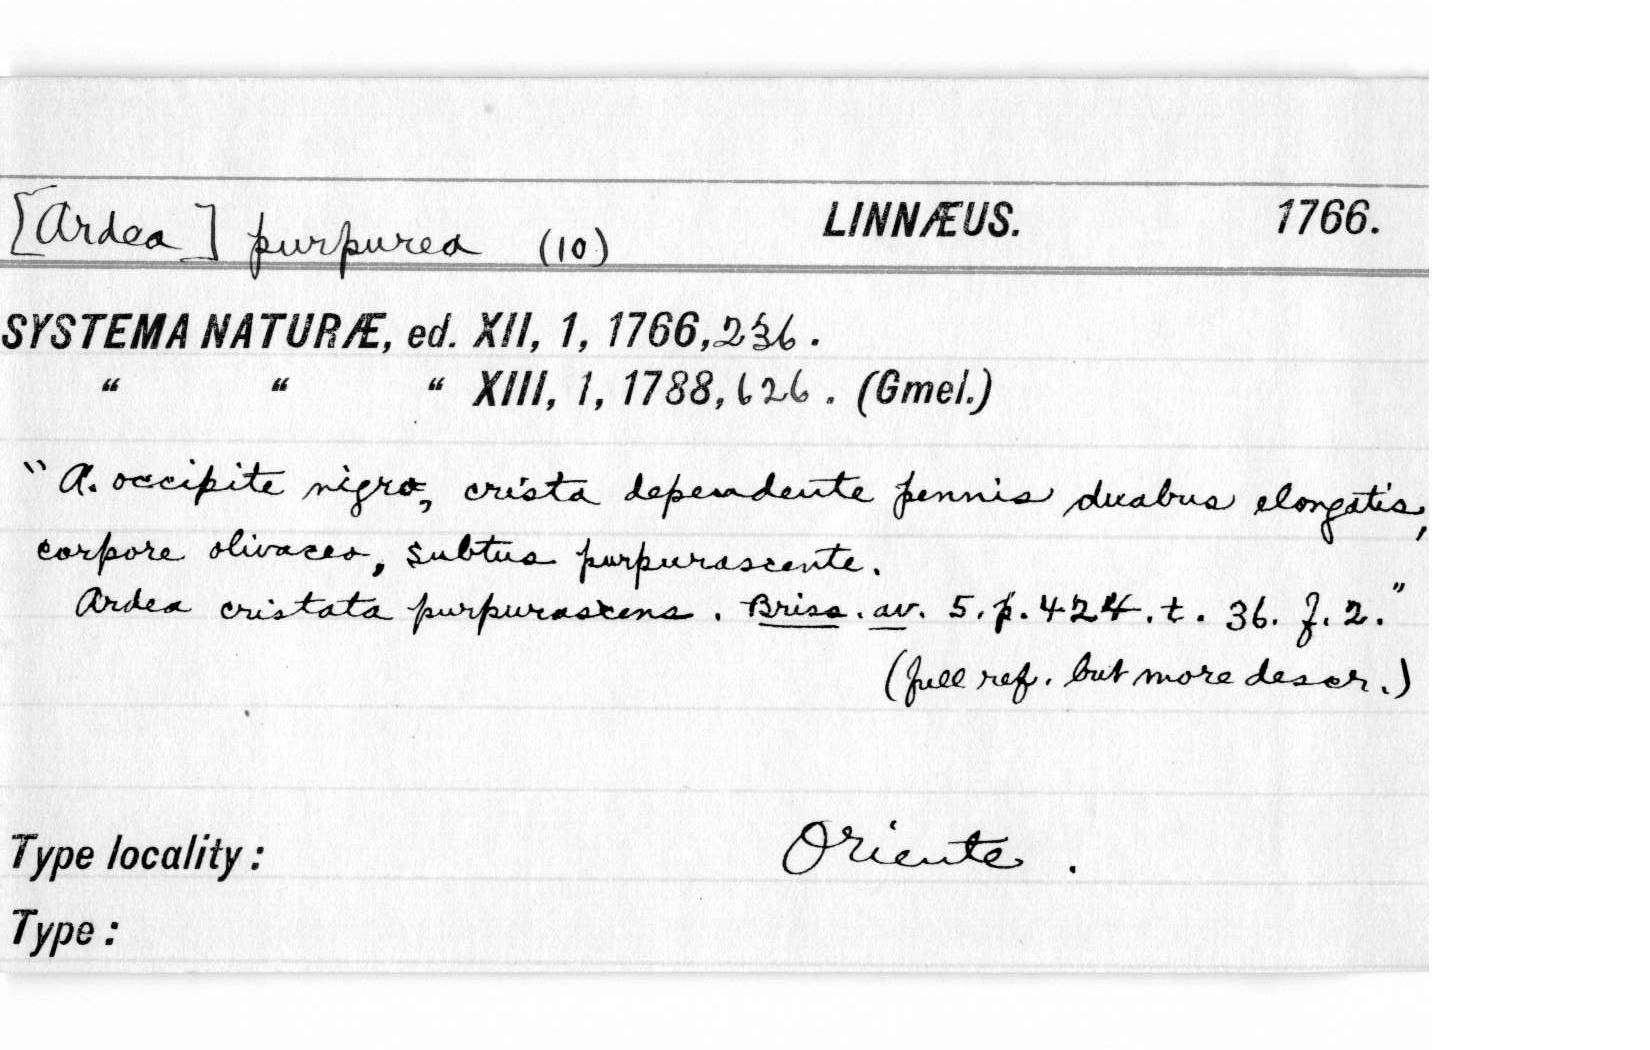 [Ardea] purpurea (10) LINNÆUS. 1766.
SYSTEMA NATURÆ, ed. XII, 1, 1766, 236.
“ “ “ XIII, 1, 1788, 626. (Gmel.)
"A. occipite nigro, crista dependente pennis duabus elongatis,
corpore olivaceo, subtus purpurascente.
Ardea cristata purpurascens. Briss. av. 5. p. 424. t. 36. f. 2."
(full ref. but more descr.)
Type locality: Oriente.
Type: